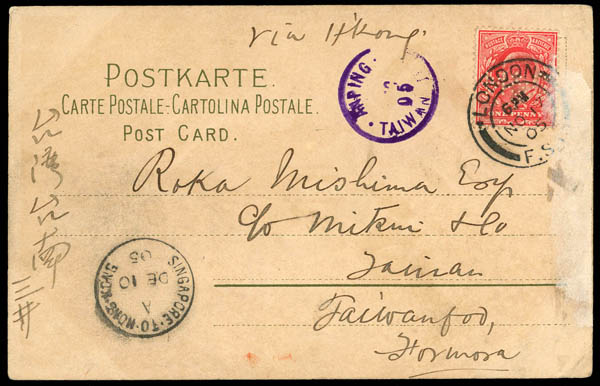 via H'Kong.
POSTKARTE.
CARTE POSTALE-CARTOLINA POSTALE.
POST CARD.
ANPING.
05
TAIWAN
LONDON
6 PM
NO
05
F.S.
ONE PENNY
Roka Mishima Esq
c/o Mitsui & Co
Tainan
Taiwanfoo,
Formosa
台湾台南
三井
SINGAPORE-TO-HONG-KONG
A
DE 10
05